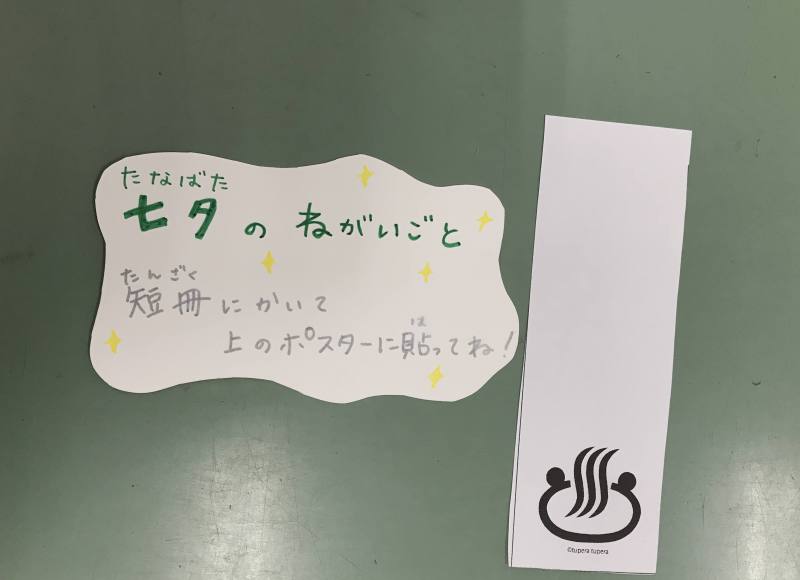 たなばた
七夕の ねがいごと
たんざく
短冊にかいて
は
上のポスターに貼ってね!
©tupera tupera